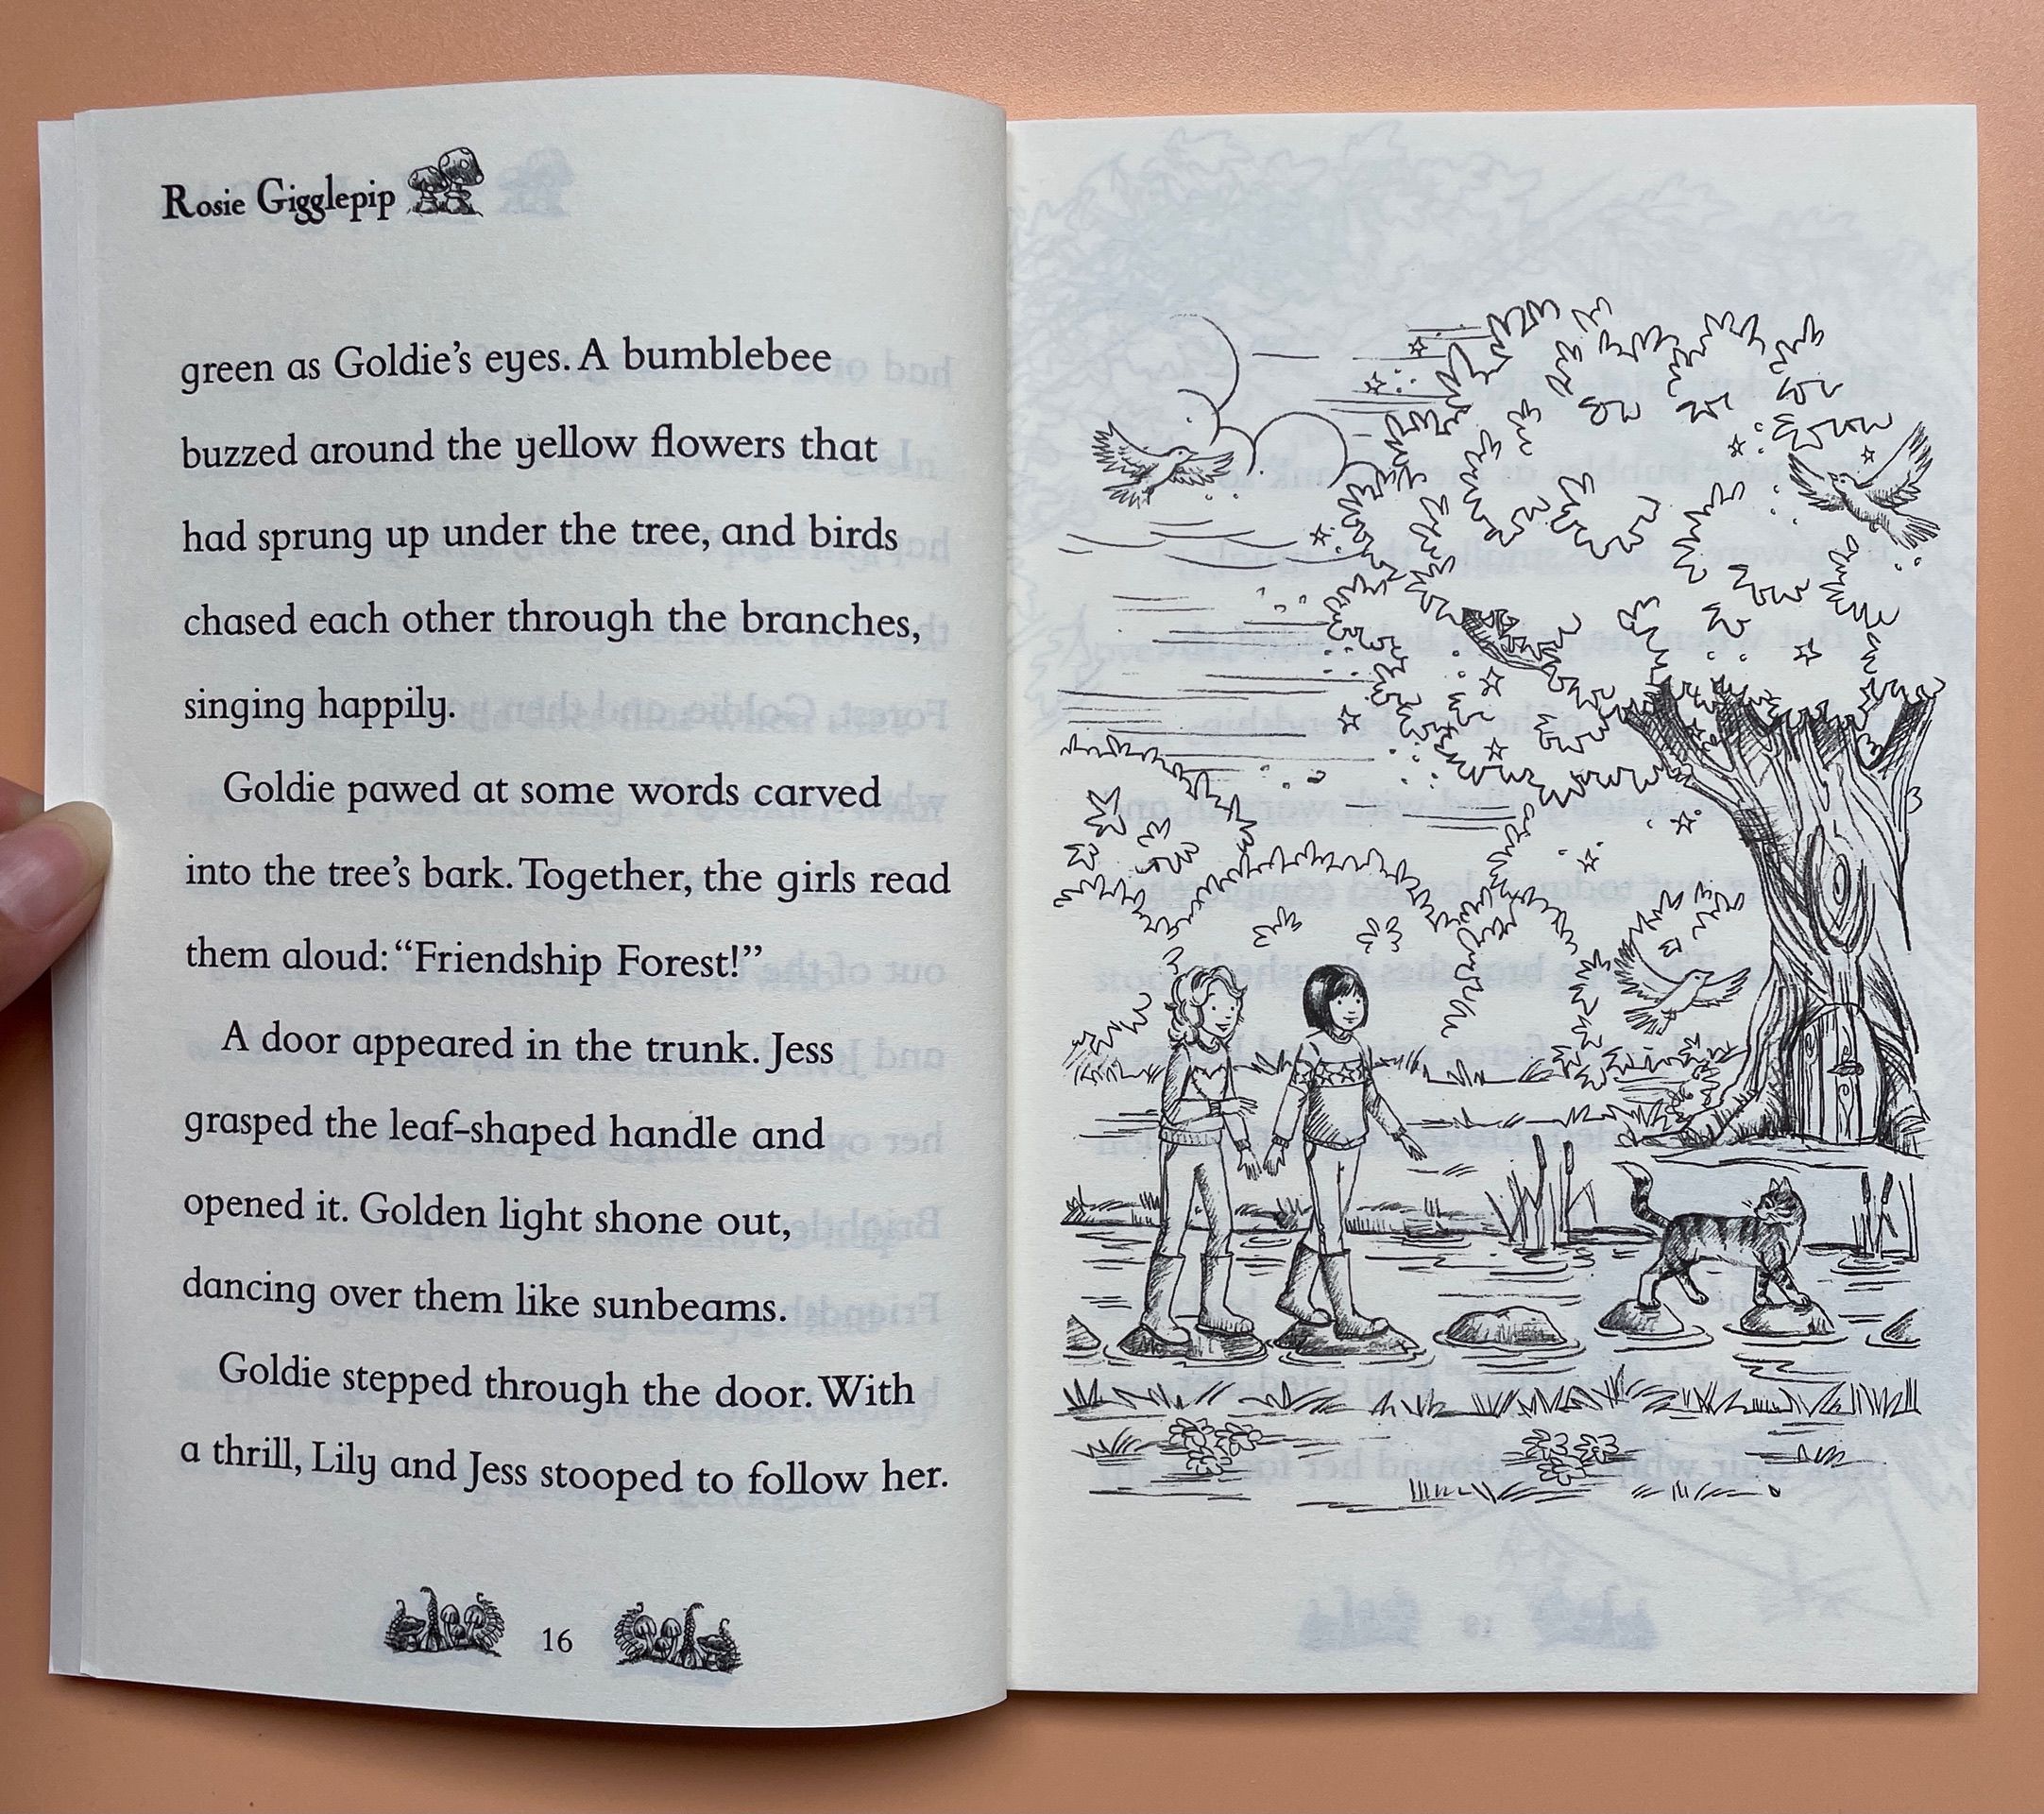 Rosie Gigglepip
green as Goldie's eyes. A bumblebee
buzzed around the yellow flowers that
had sprung up under the tree, and birds
chased each other through the branches,
singing happily.
Goldie pawed at some words carved
into the tree's bark. Together, the girls read
them aloud: “Friendship Forest!”
A door appeared in the trunk. Jess
grasped the leaf-shaped handle and
opened it. Golden light shone out,
dancing over them like sunbeams.
Goldie stepped through the door. With
a thrill, Lily and Jess stooped to follow her.
16